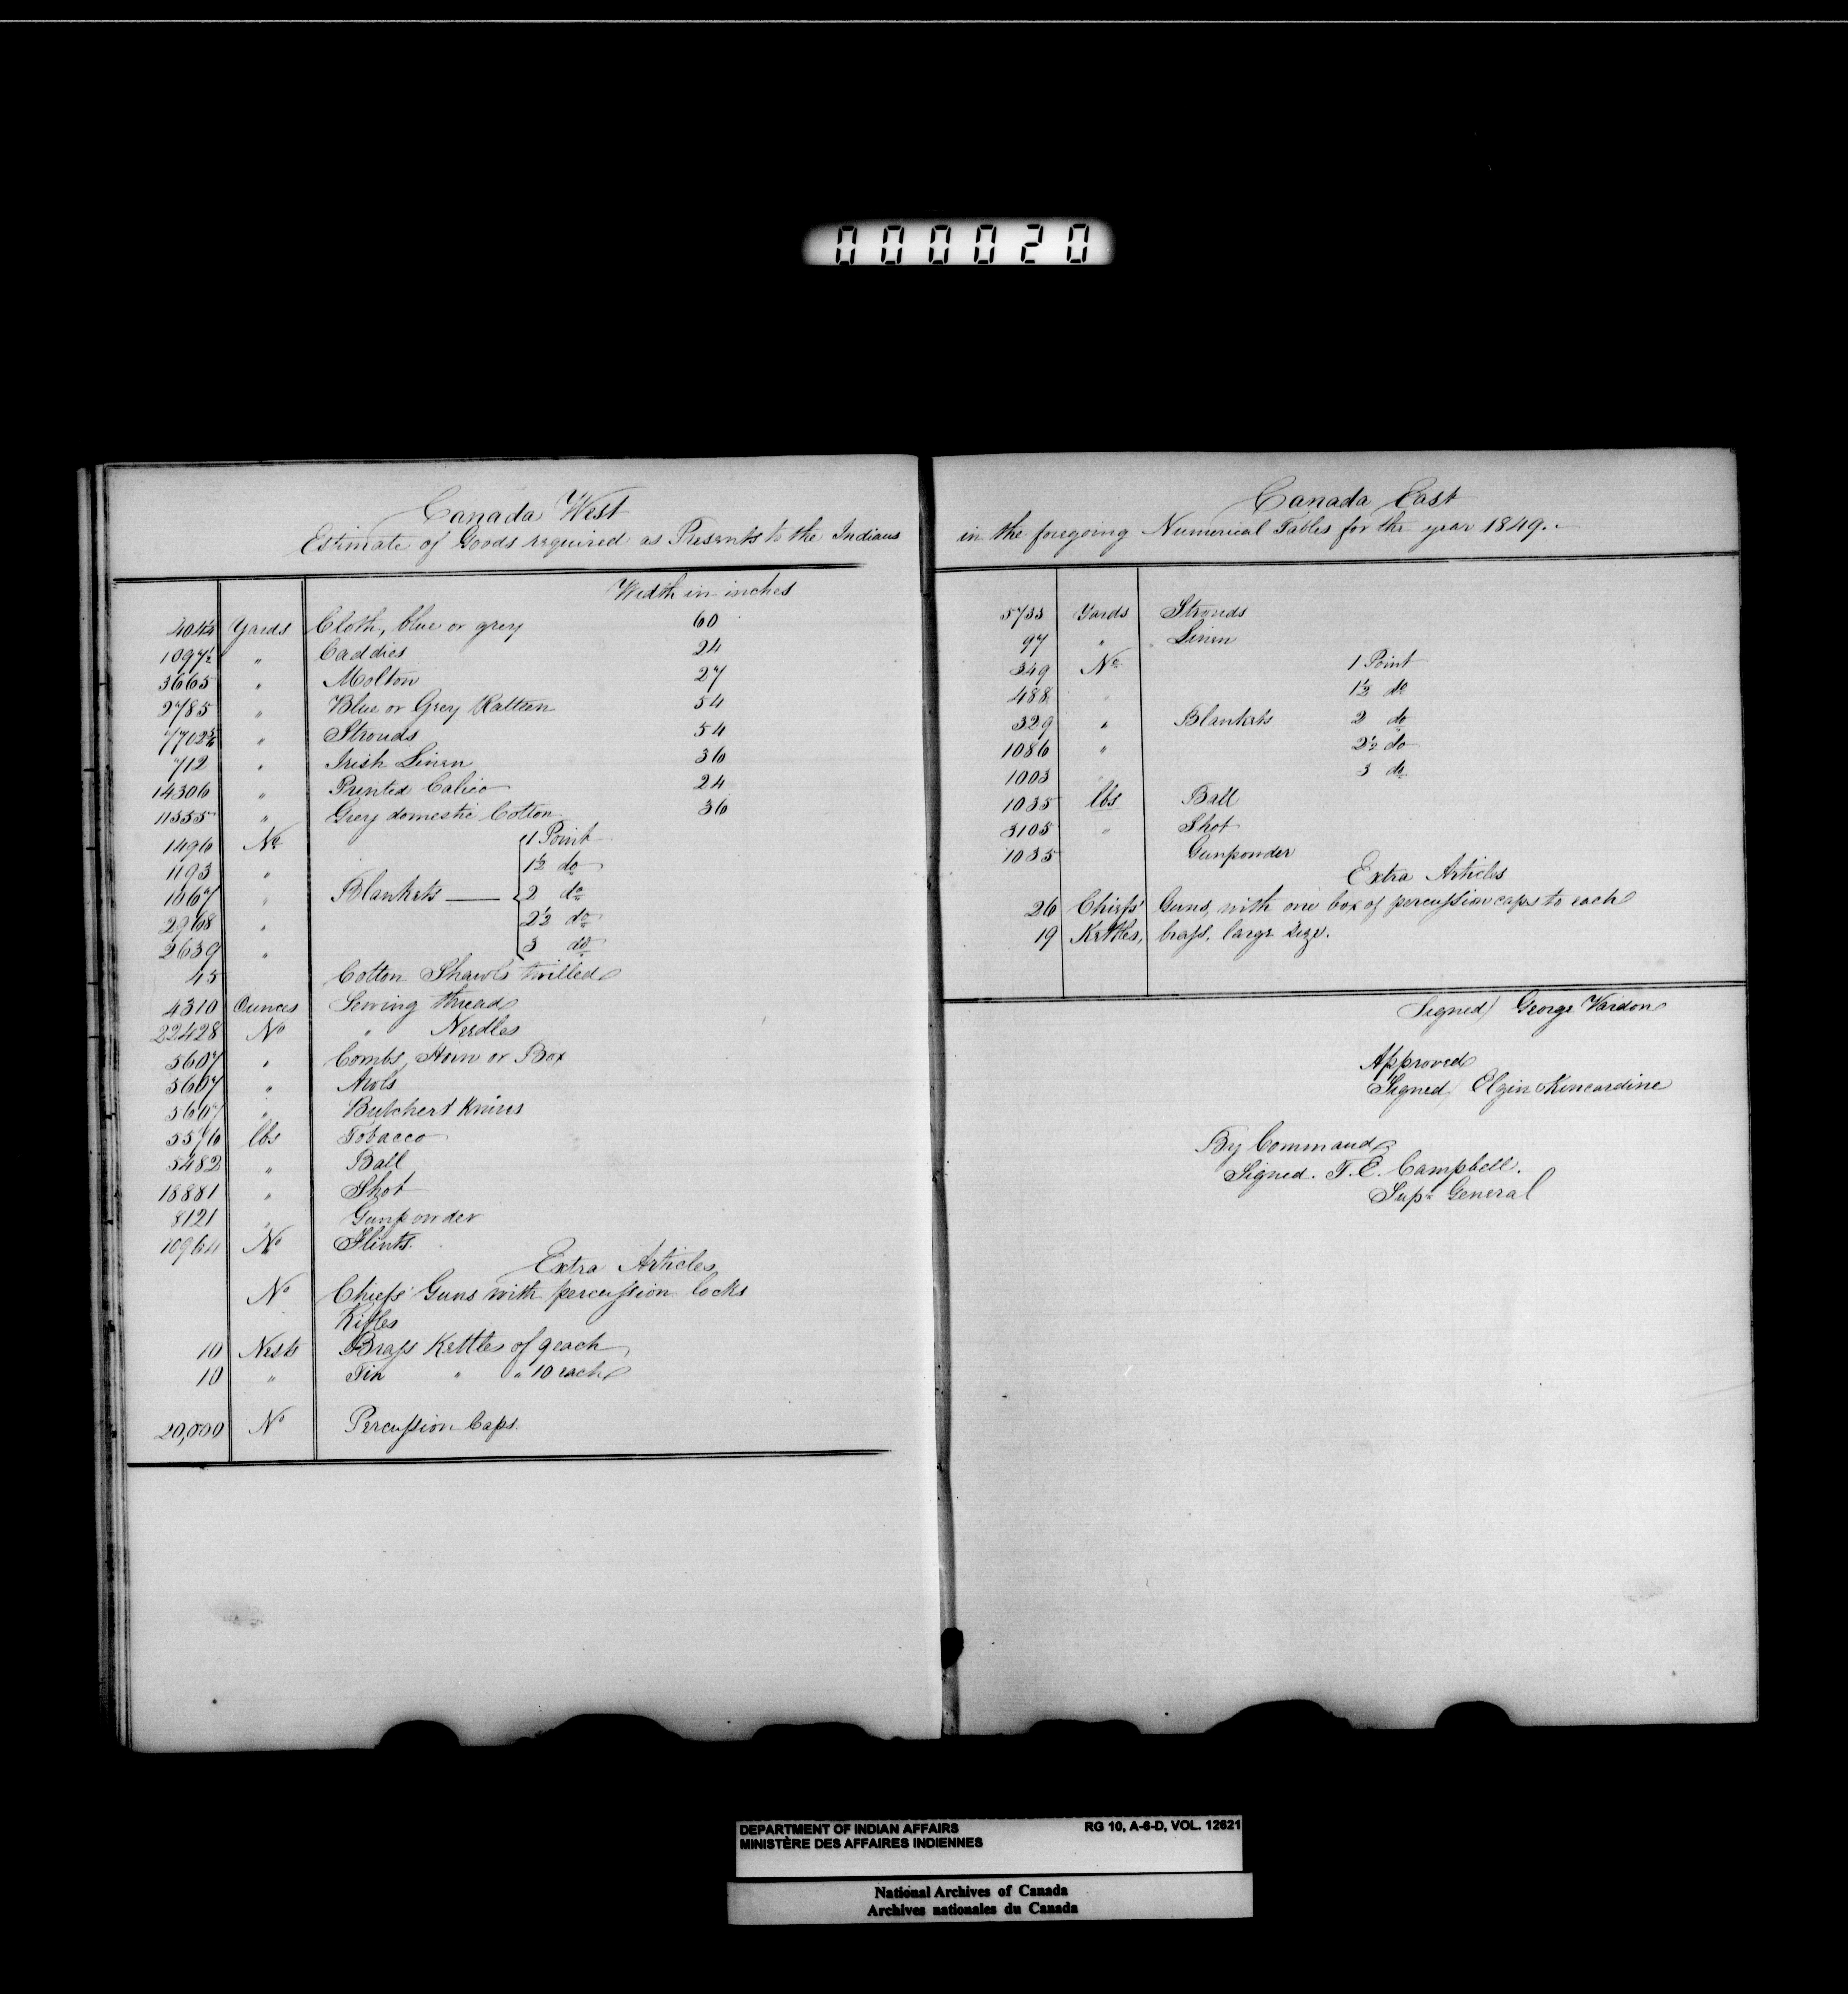 000020
Canada West
Estimate of Goods required as Presents to the Indians
Width in inches
4044 Yards Cloth, blue or grey 60
1097½ " Caddies 24
3665 " Molton 27
2785 " Blue or Grey Ratteen 54
" Strouds 54
712 " Irish Linen 36
14306 " Printed Calico 24
11555 " Grey domestic Cotton 36
1496 No 1 Point
1193 " 1½ do
1067 " Blankets 2 do
2968 " 2½ do
2639 " 3 do
45 Cotton Shawls twilled
4310 Ounces Sewing thread
22428 No " Needles
5607 " Combs, Horn or Box
5607 " Awls
5607 " Butchers Knives
5576 lbs Tobacco
5482 " Ball
18881 " Shot
8121 " Gunpowder
10964 No Flints.
Extra Articles
No Chiefs' Guns with percussion locks
Rifles
10 Nests Brass Kettles of 9 each
10 " Tin " " 10 each
20,000 No Percussion Caps.
Canada East
in the foregoing Numerical Tables for the year 1849.
5733 Yards Strouds
97 " Linen
349 No 1 Point
488 " 1½ do
329 " Blankets 2 do
1086 " 2½ do
1003 " 3 do
1035 lbs Ball
3105 " Shot
1035 Gunpowder
Extra Articles
26 Chiefs' Guns, with one box of percussion caps to each
19 Kettles, brass, large size.
Signed) George Vardon
Approved
Signed) Elgin Kincardine
By Command,
Signed. T. E. Campbell.
Supt General
DEPARTMENT OF INDIAN AFFAIRS RG 10, A-6-D, VOL. 12621
MINISTÈRE DES AFFAIRES INDIENNES
National Archives of Canada
Archives nationales du Canada